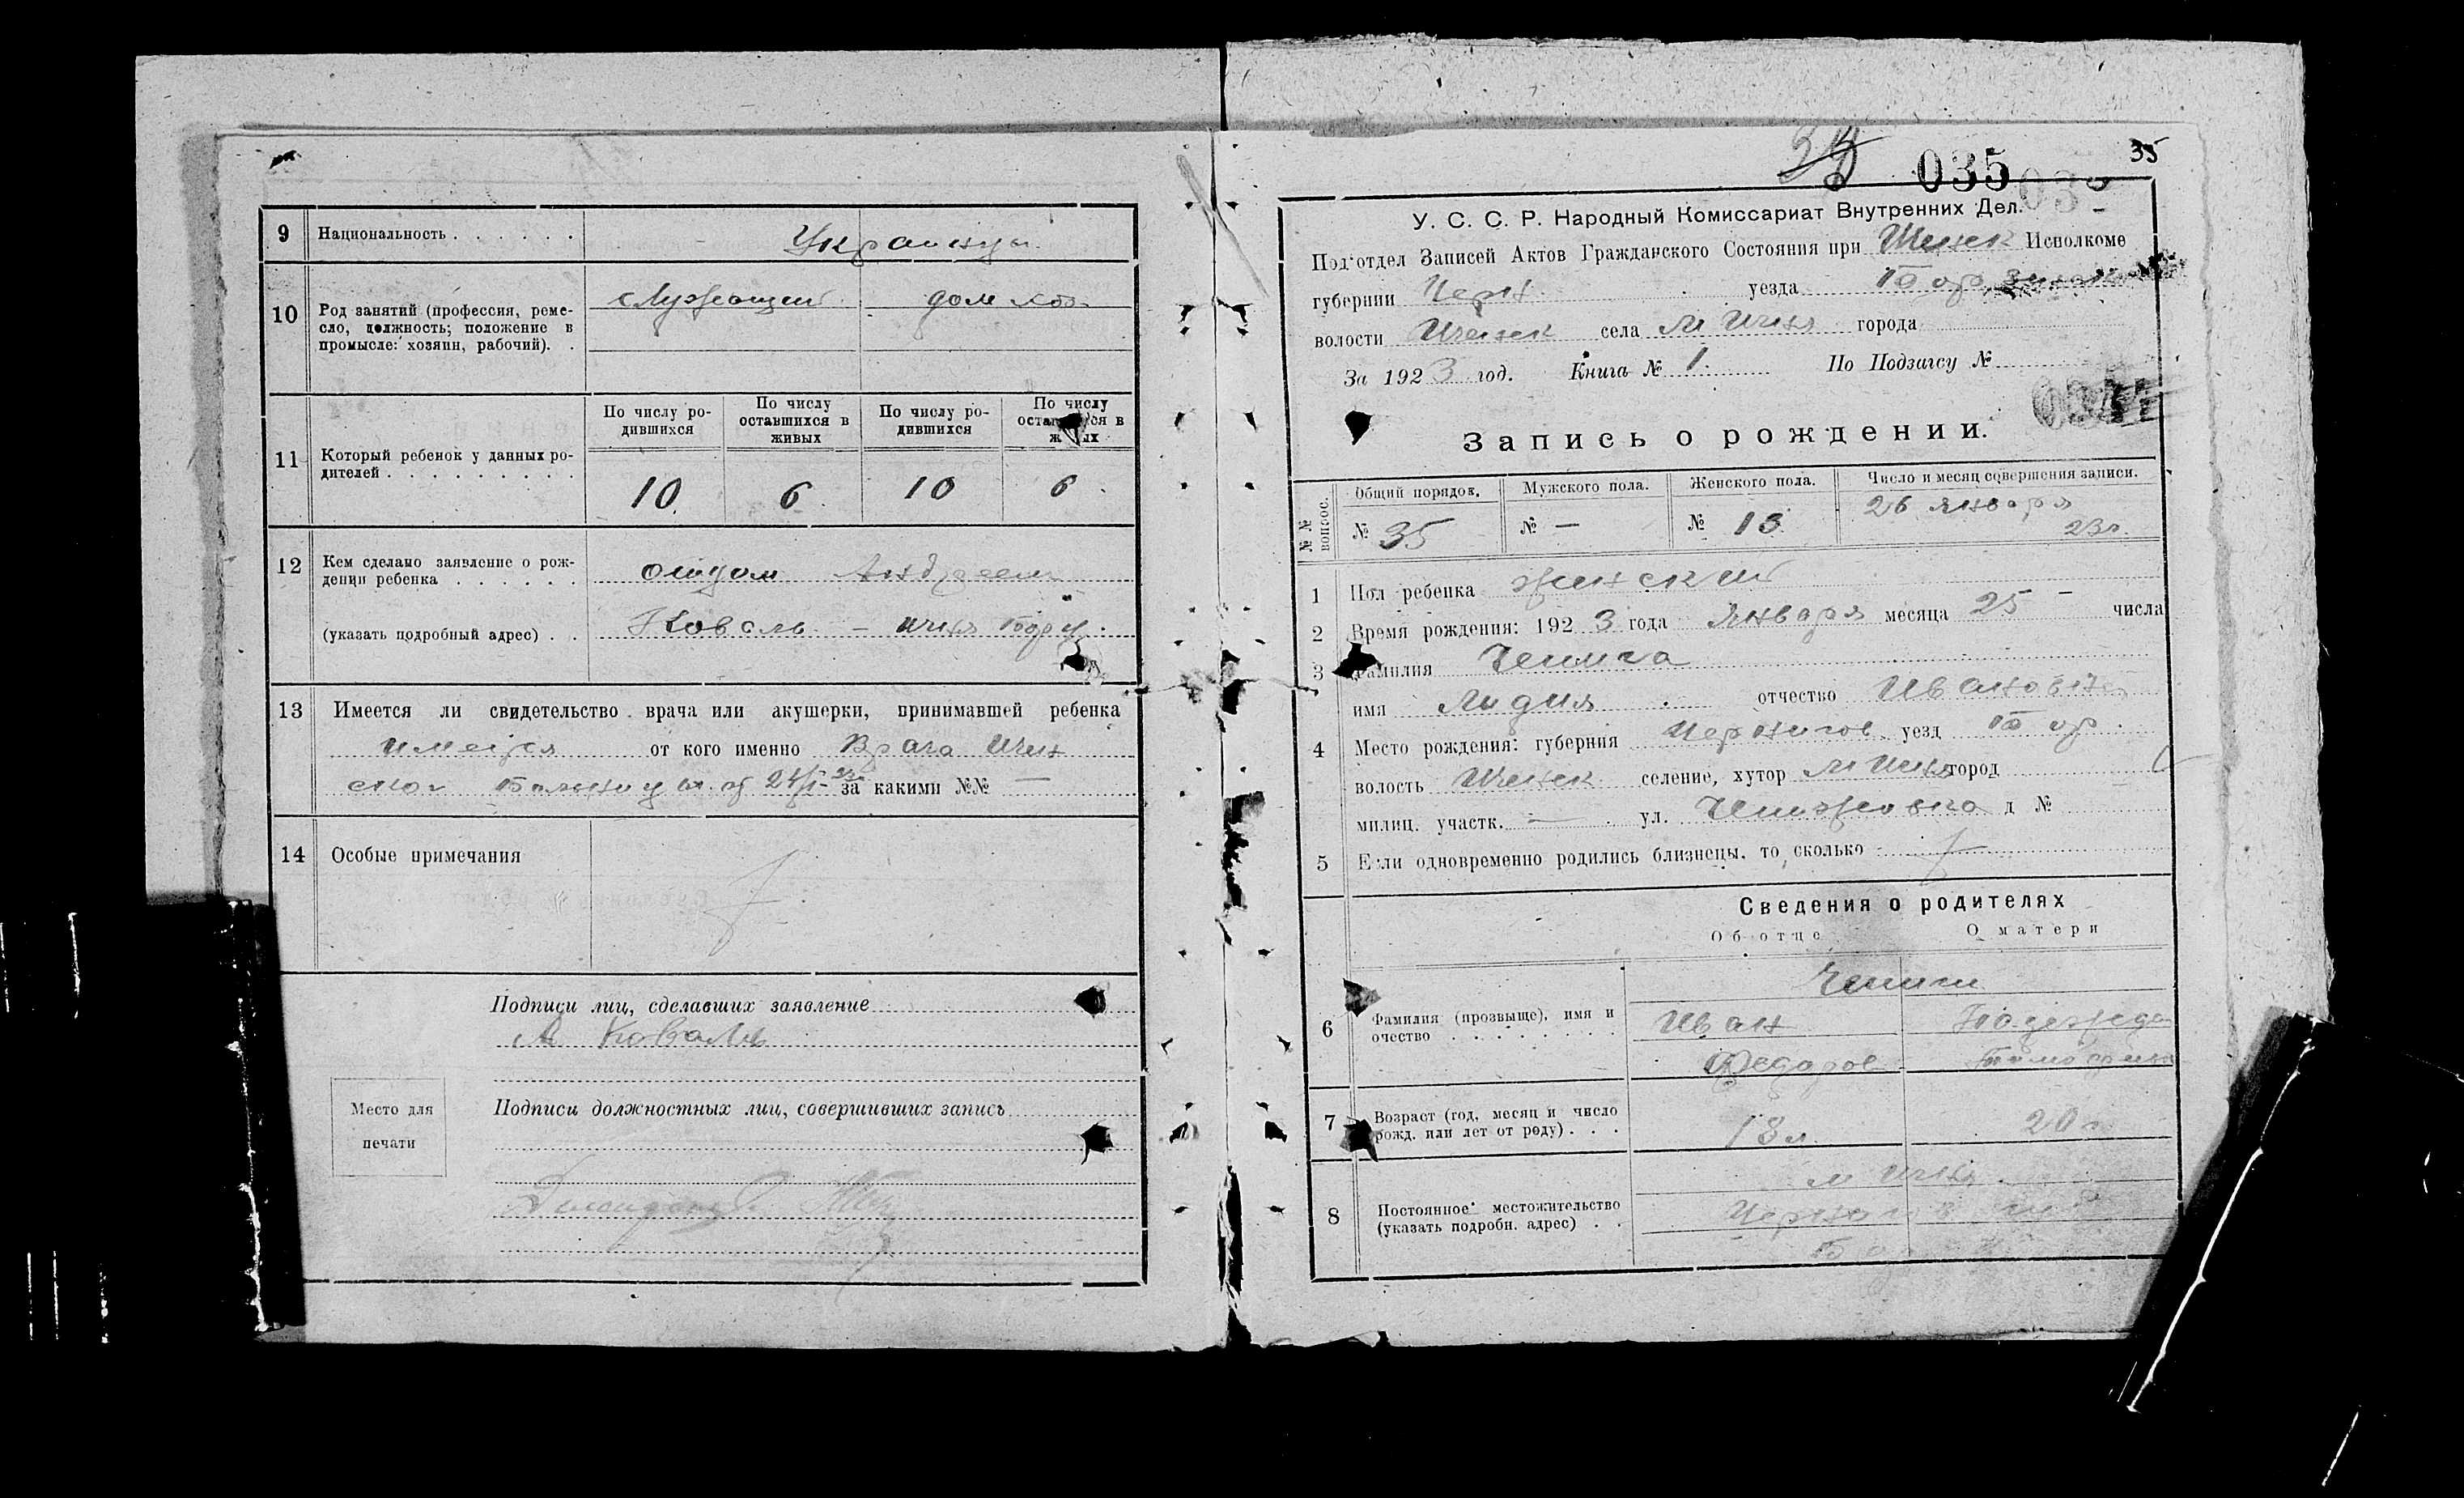 9 Национальность Украинцы
10 Род занятий (профессия, реме-
сло, должность; положение в
промысле: хозяин, рабочий).
служащий дом хоз.
11 Который ребенок у данных ро-
дителей
По числу ро-
дившихся
По числу
оставшихся в
живых
По числу ро-
дившихся
По числу
оставшихся в
живых
10 6 10 6
12 Кем сделано заявление о рож-
дении ребенка отцом Андреем
(указать подробный адрес) Коваль – Ичня
13 Имеется ли свидетельство врача или акушерки, принимавшей ребенка
имеется от кого именно Врача Ичн
ской Больницы от 24/I 23 за какими №№ —
14 Особые примечания
Подписи лиц, сделавших заявление
А Коваль
Подписи должностных лиц, совершивших запись
Место для
печати
35 035 35
У. С. С. Р. Народный Комиссариат Внутренних Дел.
Под'отдел Записей Актов Гражданского Состояния при Ичнск Исполкоме
губернии Черн уезда Бор
волости Ичнск села М Ичня города
За 1923 год. Книга № 1. По Подзагсу №
Запись о рождении.
№№ вопрос.
Общий порядок.
Мужского пола.
Женского пола.
Число и месяц совершения записи.
№ 35 № — № 13 26 января
23г.
1 Пол ребенка женский
2 Время рождения: 1923 года Января месяца 25 – числа
3 Фамилия Чепига
имя Лидия отчество Ивановна
4 Место рождения: губерния Чернигов уезд Бор.
волость Ичнск селение, хутор М Ичня город
милиц. участк. — ул. д №
5 Если одновременно родились близнецы, то сколько
Сведения о родителях
Об отце О матери
6 Фамилия (прозвыще), имя и
очество
Чепиги
Иван Надежда
Федоров Тимофеев
7 Возраст (год, месяц и число
рожд. или лет от роду)
18 л. 20 л
8 Постоянное местожительство
(указать подробн. адрес)
м Ичня